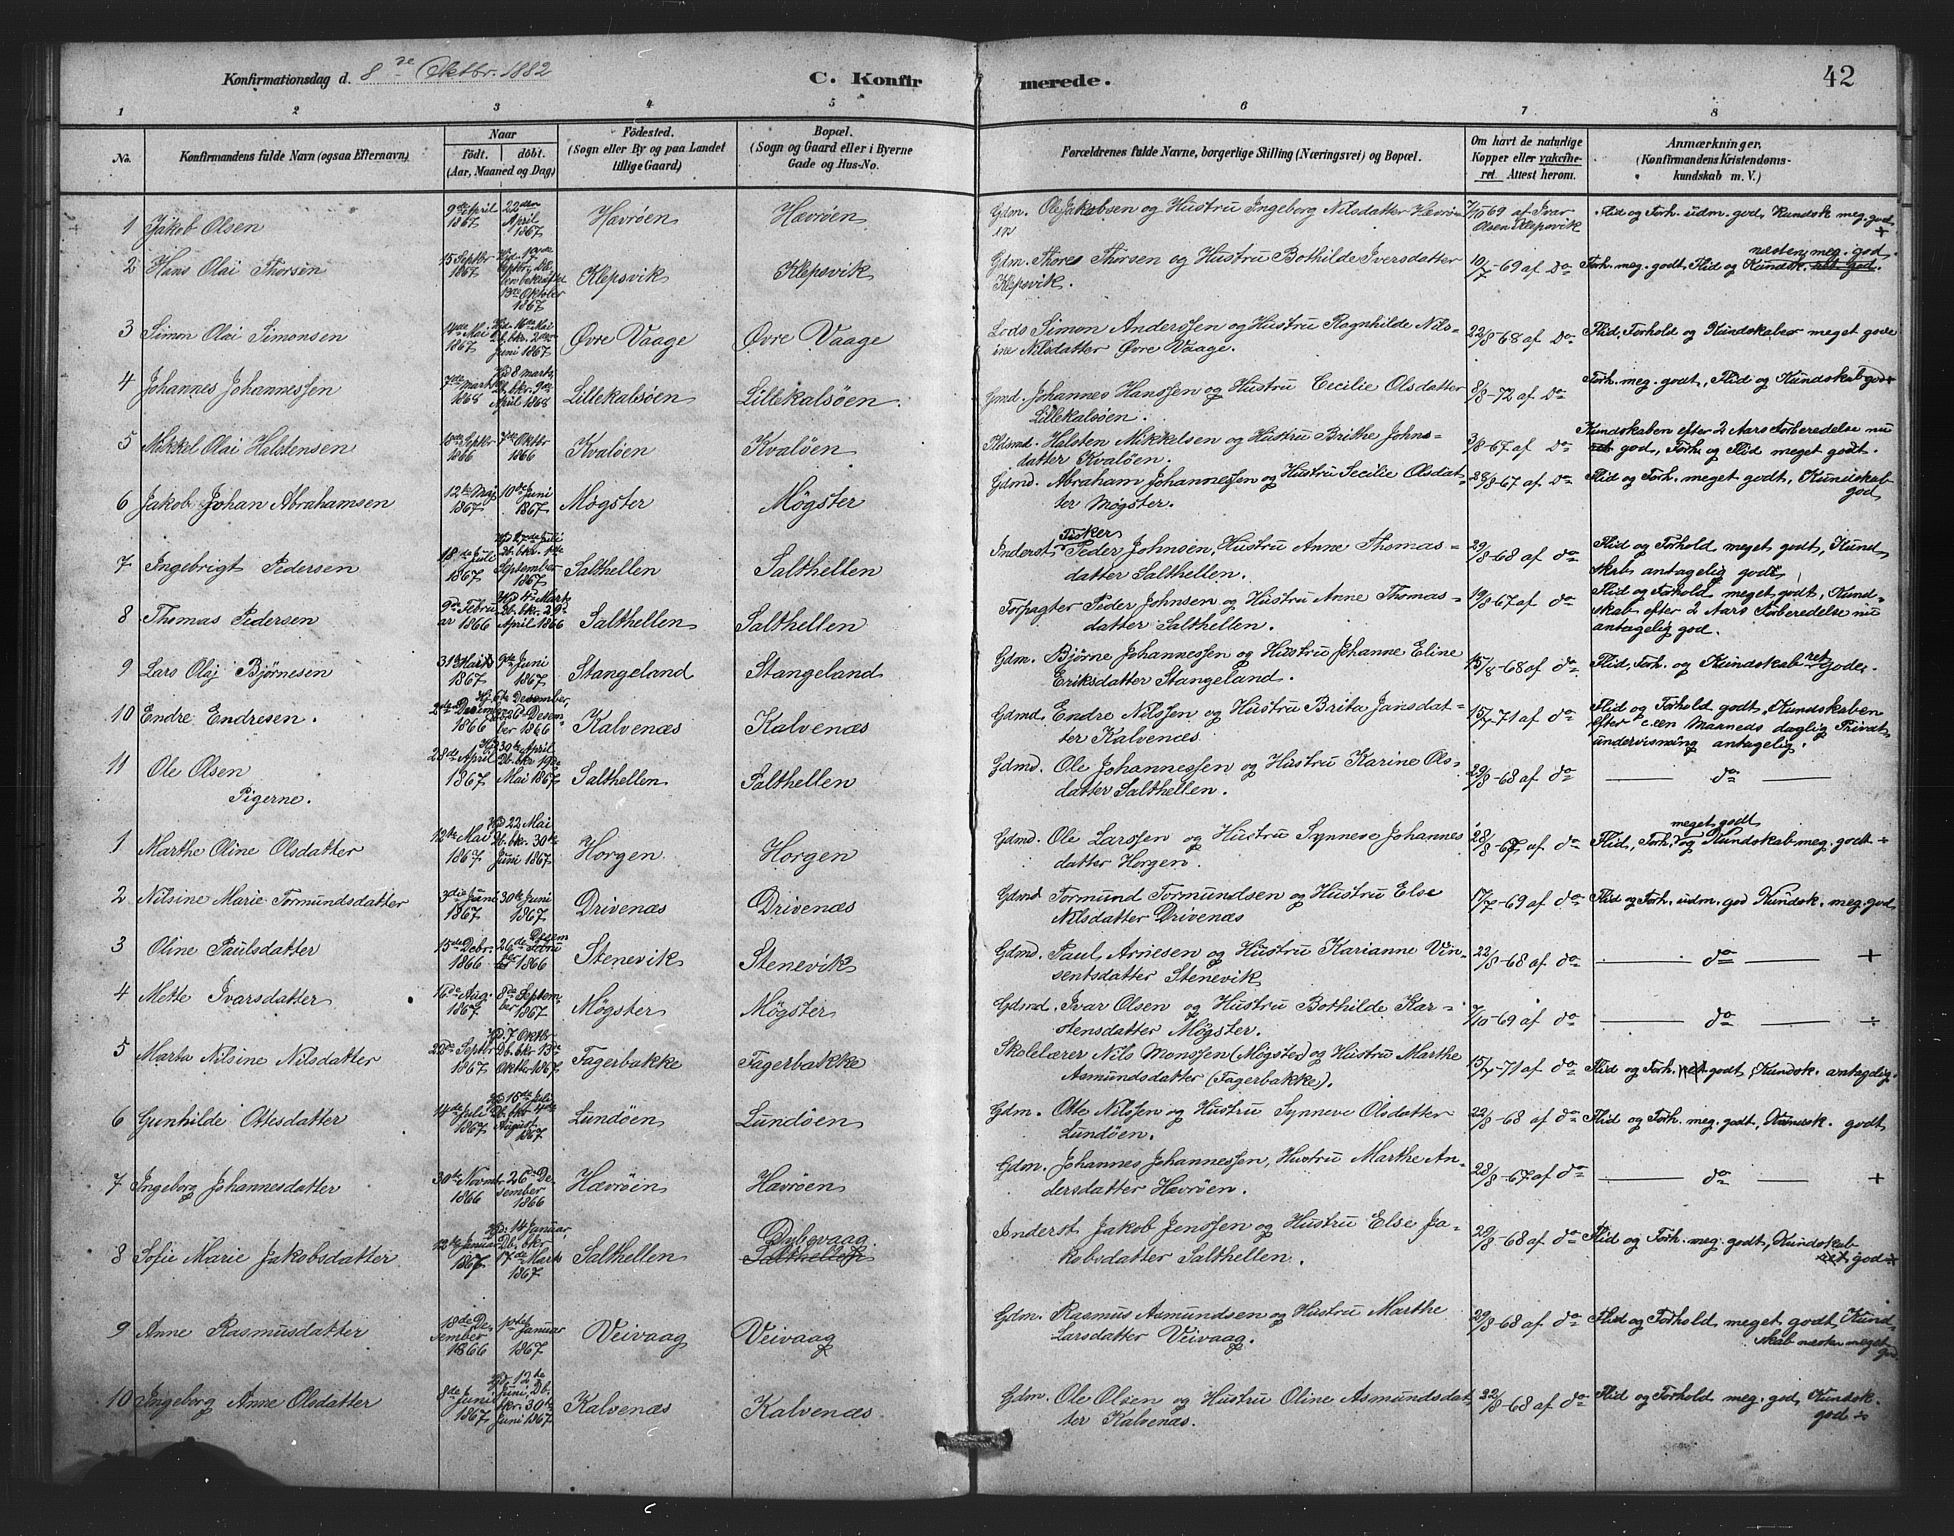 Konfirmationsdag d. 8de Oktbr. 1882
C. Konfirmerede.
42
1 2 3 4 5 6 7 8
No.
Konfirmandens fulde Navn (ogsaa Efternavn)
Naar
født. døbt.
(Aar, Maaned og Dag)
Fødested.
(Sogn eller By og paa Landet
tillige Gaard)
Bopæl.
(Sogn og Gaard eller i Byerne
Gade og Hus-No.
Forældrenes fulde Navne, borgerlige Stilling (Næringsvei) og Bopæl.
Om havt de naturlige
Kopper eller vakcine-
ret. Attest herom.
Anmærkninger,
(Konfirmandens Kristendoms-
kundskab m. V.)
1 Jakob Olsen 9de April 1867 22den April 1867 Hævrøen Hævrøen Gdm. Ole Jakobsen og Hustru Ingeborg Nilsdatter Hævrøen 7/10 69 af Ivar Olsen Klepsvik Flid og Forh. udm. god, Kundsk. meg. god +
2 Hans Olai Thorsen 15 Septbr 1867 Oktober 1867 Klepsvik Klepsvik Gdm. Thores Thorsen og Hustru Bothilde Iversdatter Klepsvik. 10/7-69 af Do Forh. meg. godt, Flid og Kundsk. næsten meg. god.
3 Simon Olai Simonsen 14de Mai 1867 Hjd. 16de Mai Db. bkr. Juni 1867 Øvre Vaage Øvre Vaage Lods Simon Anderssen og Hustru Ragnhilde Nilsine Nilsdatter Øvre Vaage. 22/8-68 af Do Flid, Forhold og Kundskaber meget gode
4 Johannes Johannessen 7de Marts 1868 Hjd 8 marts, Db. bkr. 9de April 1868 Lillekalsøen Lillekalsøen. Gmd. Johannes Hanssen og Hustru Cecilie Olsdatter Lillekalsøen. 8/8-72 af Do Forh. meg. godt, Flid og Kundskab god
5 Mikkel Olai Halstensen Septbr 1866 7de Oktbr 1866 Kvaløen Kvaløen Halsten Mikkelsen og Hustru Brithe Johnsdatter Kvaløen. 3/8-67 af Do Kundskaben efter 2 Aars Forberedelse nu god, Forh. og Flid meget godt.
6 Jakob Johan Abrahamsen 12te Maj 1867 10de Juni 1867 Møgster Møgster Gdmd. Abraham Johannessen og Hustru Secilie Olsdatter Møgster. 28/8-67 af Do Flid og Forh. meget godt, Kundskab god
7 Ingebrigt Pedersen 18de Juli 1867 Hjd 27de Juli Db. bkr. September 1867 Salthellen Salthellen Inderst Fisker Peder Johnsen, Hustru Anne Thomasdatter Salthellen. 29/8-68 af do Flid og Forhold meget godt, Kundskab antagelig godt
8 Thomas Pedersen 9de Februar 1866 Hjd 4. Mart Db. bkr. 29de April 1866 Salthellen Salthellen Forpagter Peder Johnsen og Hustru Anne Thomasdatter Salthellen. 19/8-67 af do Flid og Forhold meget godt, Kundskab efter 2 Aars Forberedelse nu antagelig god.
9 Lars Olaj Bjørnesen 31 Marts 1867 9de Juni 1867 Stangeland Stangeland Gdm. Bjørne Johannessen og Hustru Johanne Eline Eriksdatter Stangeland. 15/8-68 af do Flid, Forh. og Kundskab ret gode.
10 Endre Endresen. 2den Desember 1866 Hj. 6te Desember, 26 Desember 1866 Kalvenæs Kalvenæs Gdmd. Endre Nilssen og Hustru Brita Jansdatter Kalvenæs 15/7-71 af do Flid og Forhold godt, Kundskaben efter c. een Maaneds daglig Privatundervisning antagelig.
11 Ole Olsen 28de April 1867 Hjd 30te April Db. bkr 19de Mai 1867 Salthellen Salthellen Gdmd. Ole Johannessen og Hustru Karine Olsdatter Salthellen. 29/8-68 af do do
Pigerne.
1 Marthe Oline Olsdatter 12te Mai 1867 Hjd 22 Mai Db. bkr. 30te Juni 1867 Horgen Horgen Gdmd. Ole Larssen og Hustru Synneve Johannesdatter Horgen. 28/8-67 af do Flid, Forh. meget godt og Kundskab meg. godt +
2 Nilsine Marie Tormundsdatter 3die Juni 1867 30te Juni 1867 Drivenæs Drivenæs Gdmd Tormund Tormundsen og Hustru Else Nilsdatter Drivenæs 17/7-69 af do Flid og Forh. udm. god Kundsk. meg. god
3 Oline Paulsdatter 15de Debr. 1866 26de Desem 1866 Stenevik Stenevik Gdmd. Paul Arnesen og Hustru Karianne Vinsentsdatter Stenevik 22/8-68 af do do +
4 Mette Ivarsdatter 16de Aug. 1867 8de September 1867 Møgster Møgster Gdmd. Ivar Olsen og Hustru Bothilde Karstensdatter Møgster. 7/10-69 af do do ÷
5 Marta Nilsine Nilsdatter Septbr 1867 Hjd. 7. Oktbr Db. bkr 13de Oktber 1867 Fagerbakke Fagerbakke Skolelærer Nils Monssen (Møgster) og Hustru Marthe Asmundsdatter (Fagerbakke). 15/7-71 af do Flid og Forh. godt, Kundsk. antagelig.
6 Gunhilde Ottesdatter 14de Juli 1867 Hjd 15de Juli Db. bkr 4de August 1867 Lundøen Lundøen Gdm. Otte Nilssen og Hustru Synneve Olsdatter Lundøen. 22/8-68 af do Flid og Forh. meg. godt, Kundsk. godt
7 Ingeborg Johannesdatter 30te Novmbr 1866 26de Desember 1866 Hævrøen Hævrøen Gdm. Johannes Johannessen, Hustru Marthe Andersdatter Hævrøen. 28/8-67 af do do +
8 Sofie Marie Jakobsdatter 12te Januar 1867 Hjd. 14 Januar, Db. bkr 17de Marts 1867 Salthellen Dybevaag. Salthellen Inderst Jakob Jenssen og Hustru Else Jakobsdatter Salthellen. 29/8-68 af do Flid og Forh. meg. godt, Kundskab god
9 Anne Rasmusdatter 18de Desember 1866 1ste Januar 1867 Veivaag Veivaag Gdm. Rasmus Asmundsen og Hustru Marthe Larsdatter Veivaag. 29/8-68 af do Flid og Forhold meget godt, Kundskab næsten meget god
10 Ingeborg Anne Olsdatter 8de Juni 1867 Hjd. 12te Juni, Db. bkr. 30te Juni 1867 Kalvenæs Kalvenæs. Gdm. Ole Olsen og Hustru Oline Asmundsdatter Kalvenæs. 22/8-68 af do Flid og Forhold meg. god, Kundsk. god